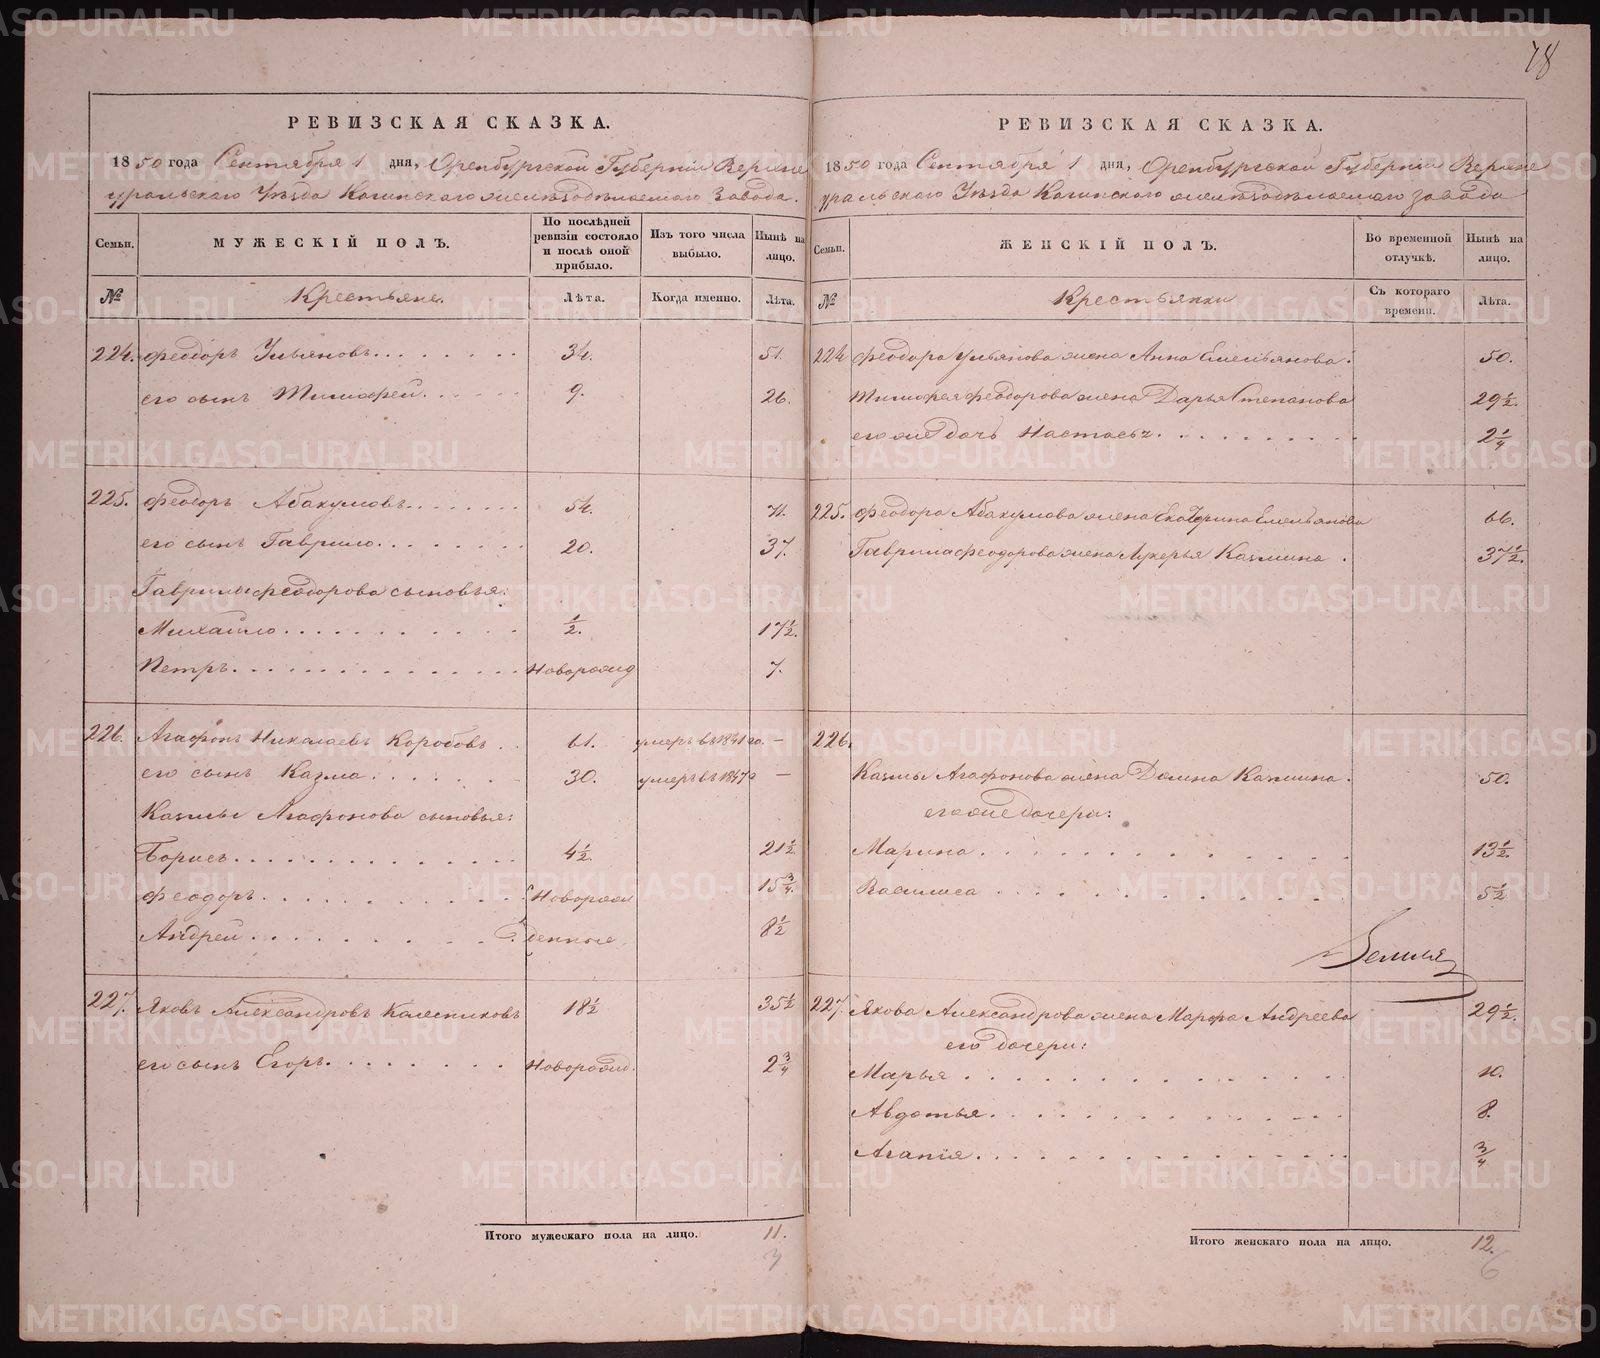 78
РЕВИЗСКАЯ СКАЗКА.
1850 года Сентября 1 дня, Оренбургской Губерніи Верхне
уральскаго Уѣзда Кагинскаго желѣзодѣлаемаго Завода.
Семьи.
МУЖЕСКІЙ ПОЛЪ.
По послѣдней ревизіи состояло и послѣ оной прибыло.
Изъ того числа выбыло.
Нынѣ на лицо.
№
Крестьяне.
Лѣта.
Когда именно.
Лѣта.
224. Феодоръ Ульяновъ 34. 51.
его сынъ Тимофей 9. 26.
225. Феодоръ Абакумовъ 54. 71.
его сынъ Гаврило 20. 37.
Гаврилы Феодорова сыновья:
Михайло ½. 17½.
Петръ новорожд 7.
226. Агафонъ Николаевъ Коробовъ 61. умеръ въ 1841 го. —
его сынъ Казма 30. умеръ въ 1847 г —
Казмы Агафонова сыновья:
Борисъ 4½. 21½
Феодоръ Новорож 15¾.
Андрей денные. 8½
227. Яковъ Александровъ Калениковъ 18½ 35½
его сынъ Егоръ Новорожд. 2¾
Итого мужескаго пола на лицо. 11.
3
РЕВИЗСКАЯ СКАЗКА.
1850 года Сентября 1 дня, Оренбургской Губерніи Верхне
уральскаго Уѣзда Кагинскаго желѣзодѣлаемаго завода
Семьи.
ЖЕНСКІЙ ПОЛЪ.
Во временной отлучкѣ.
Нынѣ на лицо.
№
Крестьянки
Съ котораго времени.
Лѣта.
224 Феодора Ульянова жена Анна Емельянова. 50.
Тимофея Феодорова жена Дарья Степанова 29½.
его же дочь Настасья 2¼
225. Феодора Абакумова жена Екатерина Емельянова 66.
Гаврила Феодорова жена Лукерья Казмина 37½.
226.
Казмы Агафонова жена Домна Казмина 50.
его же дочери:
Марина 13½
Василиса 5½
227. Якова Александрова жена Марфа Андреева 29½.
его дочери:
Марья 10.
Авдотья 8.
Агапія ¾
Итого женскаго пола на лицо. 12.
6
METRIKI.GASO-URAL.RU